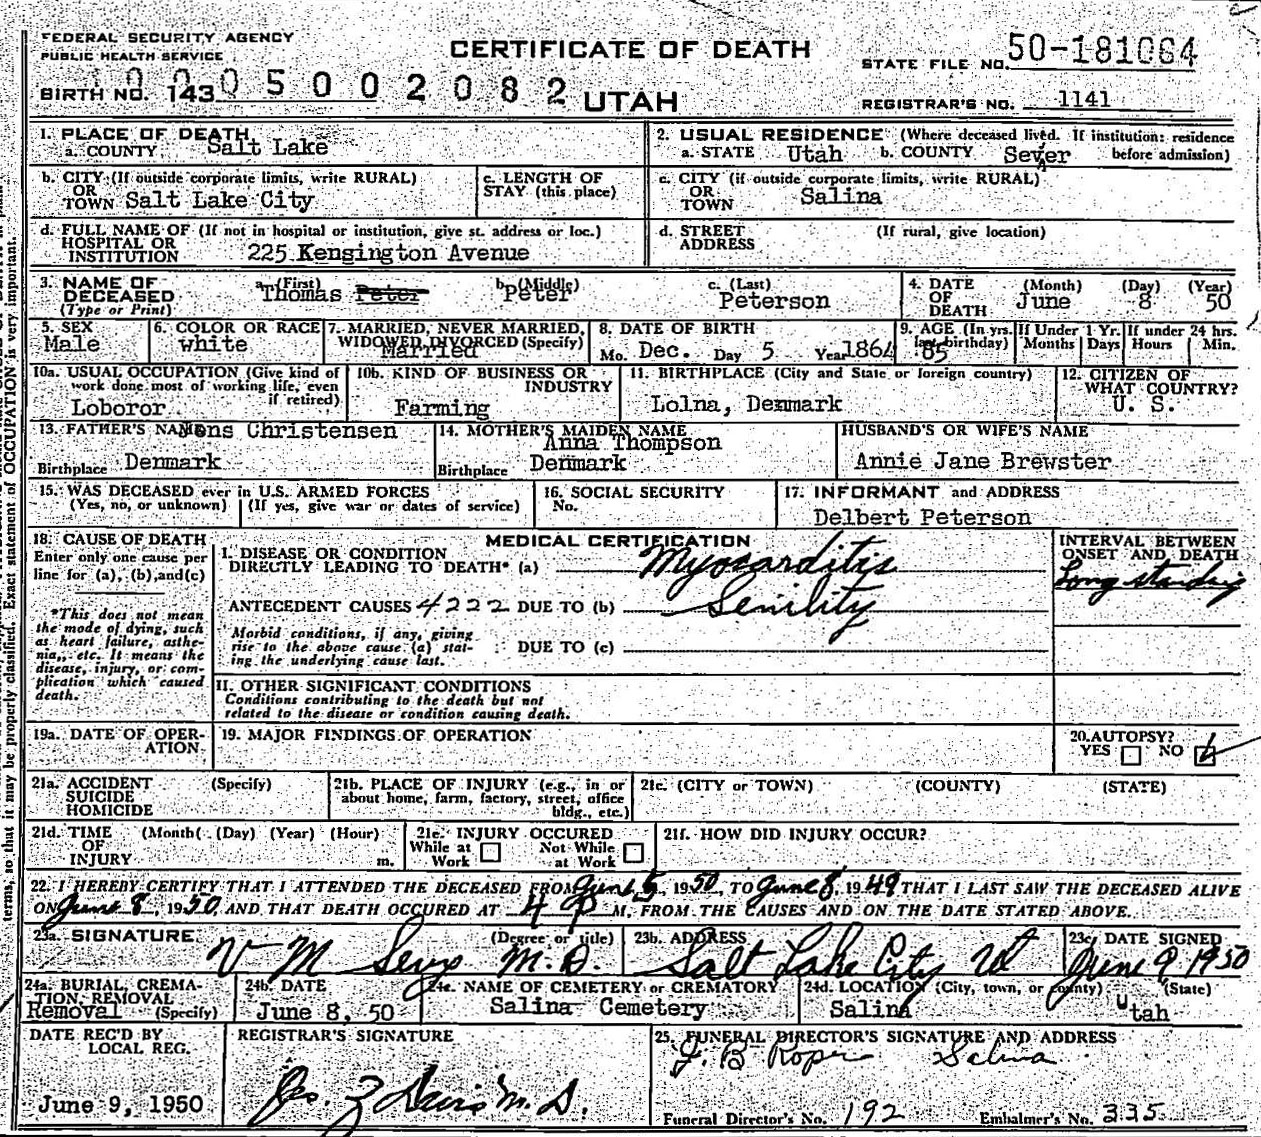 FEDERAL SECURITY AGENCY
PUBLIC HEALTH SERVICE
CERTIFICATE OF DEATH
STATE FILE NO. 50-181064
BIRTH NO. 143 0005002082 UTAH
REGISTRAR'S NO. 1141
1. PLACE OF DEATH
a. COUNTY Salt Lake
2. USUAL RESIDENCE (Where deceased lived. If institution: residence before admission)
a. STATE Utah b. COUNTY Sever
b. CITY (If outside corporate limits, write RURAL)
OR
TOWN Salt Lake City
c. LENGTH OF
STAY (this place)
c. CITY (if outside corporate limits, write RURAL)
OR
TOWN Salina
d. FULL NAME OF (If not in hospital or institution, give st. address or loc.)
HOSPITAL OR
INSTITUTION 225 Kengington Avenue
d. STREET
ADDRESS (If rural, give location)
3. NAME OF
DECEASED
(Type or Print)
a. (First) Thomas Peter
b. (Middle) Peter
c. (Last) Peterson
4. DATE
OF
DEATH
(Month) (Day) (Year)
June 8 50
5. SEX
Male
6. COLOR OR RACE
white
7. MARRIED, NEVER MARRIED,
WIDOWED, DIVORCED (Specify)
Married
8. DATE OF BIRTH
Mo. Dec. Day 5 Year 1864
9. AGE (In yrs.
last birthday)
85
If Under 1 Yr.
Months Days
If under 24 hrs.
Hours Min.
10a. USUAL OCCUPATION (Give kind of
work done most of working life, even
if retired)
Loboror
10b. KIND OF BUSINESS OR
INDUSTRY
Farming
11. BIRTHPLACE (City and State or foreign country)
Lolna, Denmark
12. CITIZEN OF
WHAT COUNTRY?
U. S.
13. FATHER'S NAME Jens Christensen
Birthplace Denmark
14. MOTHER'S MAIDEN NAME
Anna Thompson
Birthplace Denmark
HUSBAND'S OR WIFE'S NAME
Annie Jane Brewster
15. WAS DECEASED ever in U.S. ARMED FORCES
(Yes, no, or unknown) (If yes, give war or dates of service)
16. SOCIAL SECURITY
No.
17. INFORMANT and ADDRESS
Delbert Peterson
18. CAUSE OF DEATH
Enter only one cause per
line for (a), (b), and (c)
*This does not mean
the mode of dying, such
as heart failure, asthe-
nia, etc. It means the
disease, injury, or com-
plication which caused
death.
MEDICAL CERTIFICATION
I. DISEASE OR CONDITION
DIRECTLY LEADING TO DEATH* (a) Myocarditis
ANTECEDENT CAUSES 4222 DUE TO (b) Senility
Morbid conditions, if any, giving
rise to the above cause (a) stat-
ing the underlying cause last.
DUE TO (c)
INTERVAL BETWEEN
ONSET AND DEATH
Long standing
II. OTHER SIGNIFICANT CONDITIONS
Conditions contributing to the death but not
related to the disease or condition causing death.
19a. DATE OF OPER-
ATION
19. MAJOR FINDINGS OF OPERATION
20. AUTOPSY?
YES NO
21a. ACCIDENT
SUICIDE
HOMICIDE
(Specify)
21b. PLACE OF INJURY (e.g., in or
about home, farm, factory, street, office
bldg., etc.)
21c. (CITY or TOWN) (COUNTY) (STATE)
21d. TIME
OF
INJURY
(Month) (Day) (Year) (Hour)
m.
21e. INJURY OCCURED
While at
Work
Not While
at Work
21f. HOW DID INJURY OCCUR?
22. I HEREBY CERTIFY THAT I ATTENDED THE DECEASED FROM June 5, 1950, TO June 8, 1949 THAT I LAST SAW THE DECEASED ALIVE
ON June 8, 1950, AND THAT DEATH OCCURED AT 4 P M, FROM THE CAUSES AND ON THE DATE STATED ABOVE.
23a. SIGNATURE (Degree or title)
V M M.D.
23b. ADDRESS
Salt Lake City Ut
23c. DATE SIGNED
June 9 1950
24a. BURIAL, CREMA-
TION, REMOVAL
Removal (Specify)
24b. DATE
June 8, 50
24c. NAME OF CEMETERY or CREMATORY
Salina Cemetery
24d. LOCATION (City, town, or county) (State)
Salina Utah
DATE REC'D BY
LOCAL REG.
June 9, 1950
REGISTRAR'S SIGNATURE
M.D.
25. FUNERAL DIRECTOR'S SIGNATURE AND ADDRESS
Salina
Funeral Director's No. 192 Embalmer's No. 335
terms, so that it may be properly classified. Exact statement of OCCUPATION is very important.